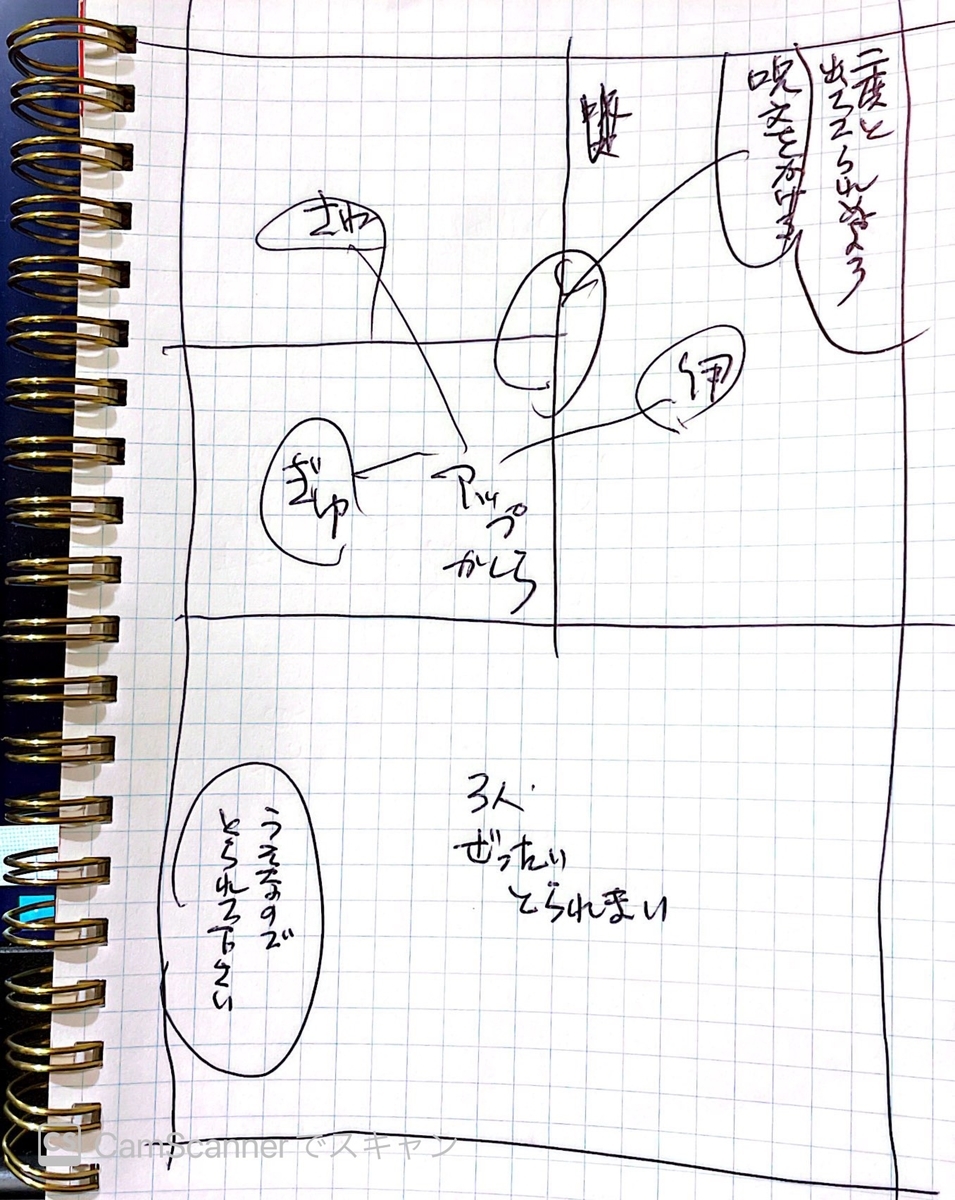 二度と
出てこられぬよう
呪文をかける
ざわ
伊
ぎゅ
アップ
かしら
3人
ぜったい
とられまい
うそなので
とられて下さい
CS CamScanner でスキャン